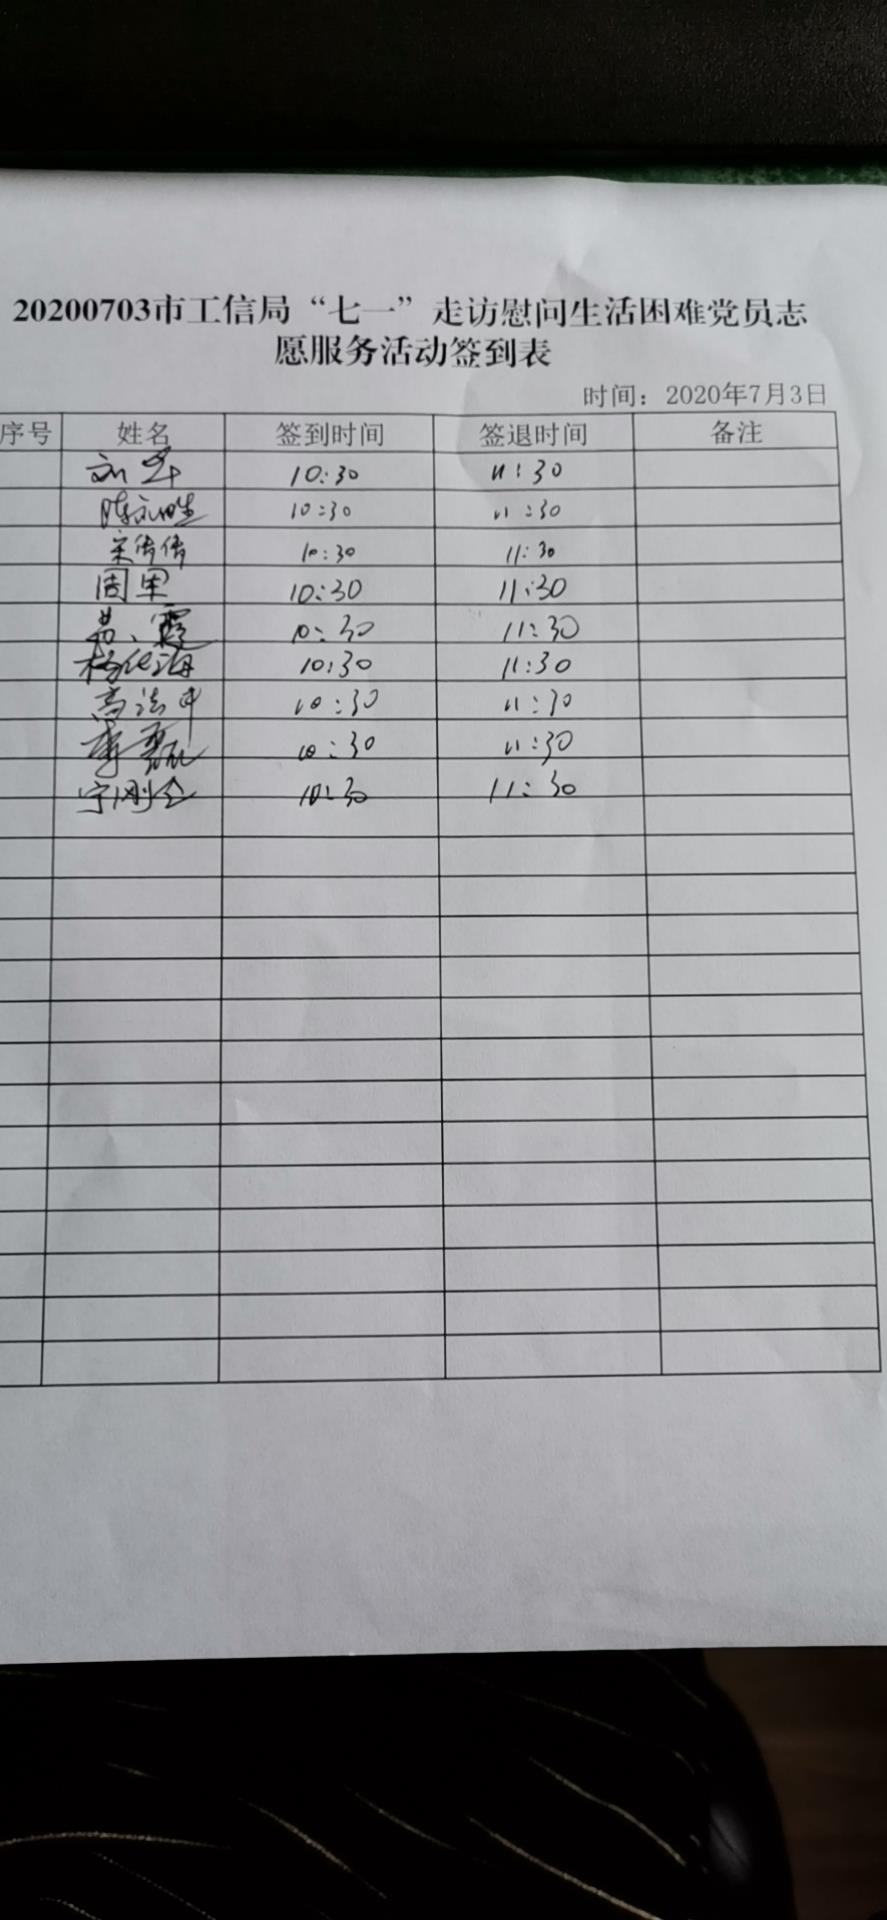 20200703市工信局“七一”走访慰问生活困难党员志
愿服务活动签到表
时间：2020年7月3日
序号 姓名 签到时间 签退时间 备注
刘军 10:30 11:30
10:30 11:30
宋倩倩 10:30 11:30
周里 10:30 11:30
苏霞 10:30 11:30
杨仁海 10:30 11:30
高法中 10:30 11:30
李磊 10:30 11:30
宁刚全 10:30 11:30